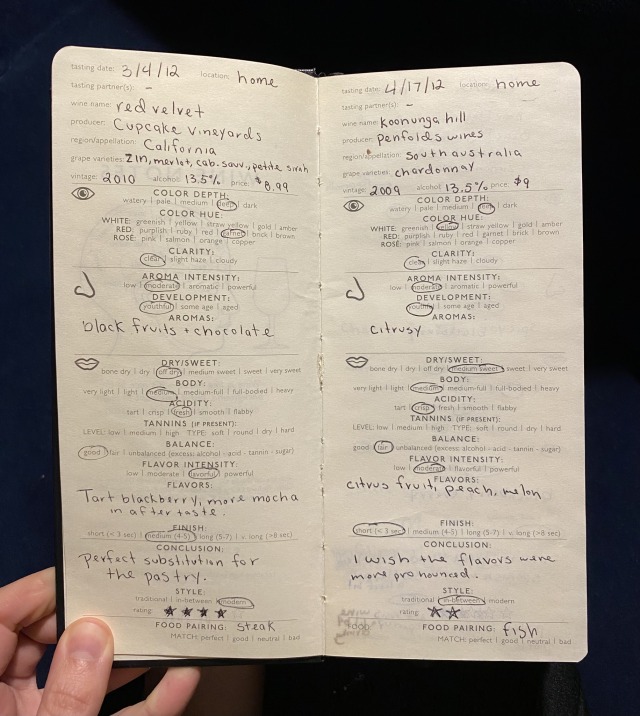 tasting date: 3/4/12 location: home
tasting partner(s): -
wine name: red velvet
producer: Cupcake Vineyards
region/appellation: California
grape varieties: Zin, merlot, cab. sauv., petite sirah
vintage: 2010 alcohol: 13.5% price: $8.99
COLOR DEPTH:
watery | pale | medium | deep | dark
COLOR HUE:
WHITE: greenish | yellow | straw yellow | gold | amber
RED: purplish | ruby | red | garnet | brick | brown
ROSÉ: pink | salmon | orange | copper
CLARITY:
clear | slight haze | cloudy
AROMA INTENSITY:
low | moderate | aromatic | powerful
DEVELOPMENT:
youthful | some age | aged
AROMAS:
black fruits + chocolate
DRY/SWEET:
bone dry | dry | off dry | medium sweet | sweet | very sweet
BODY:
very light | light | medium | medium-full | full-bodied | heavy
ACIDITY:
tart | crisp | fresh | smooth | flabby
TANNINS (IF PRESENT):
LEVEL: low | medium | high TYPE: soft | round | dry | hard
BALANCE:
good | fair | unbalanced (excess: alcohol - acid - tannin - sugar)
FLAVOR INTENSITY:
low | moderate | flavorful | powerful
FLAVORS:
Tart blackberry, more mocha
in after taste.
FINISH:
short (< 3 sec) | medium (4-5) | long (5-7) | v. long (>8 sec)
CONCLUSION:
Perfect substitution for
the pastry.
STYLE:
traditional | in-between | modern
rating ★ ★ ★ ★
FOOD PAIRING: steak
MATCH: perfect | good | neutral | bad
tasting date: 4/17/12 location: home
tasting partner(s): -
wine name: Koonunga hill
producer: Penfolds wines
region/appellation: south australia
grape varieties: chardonnay
vintage: 2009 alcohol: 13.5% price: $9
COLOR DEPTH:
watery | pale | medium | deep | dark
COLOR HUE:
WHITE: greenish | yellow | straw yellow | gold | amber
RED: purplish | ruby | red | garnet | brick | brown
ROSÉ: pink | salmon | orange | copper
CLARITY:
clear | slight haze | cloudy
AROMA INTENSITY:
low | moderate | aromatic | powerful
DEVELOPMENT:
youthful | some age | aged
AROMAS:
citrusy
DRY/SWEET:
bone dry | dry | off dry | medium sweet | sweet | very sweet
BODY:
very light | light | medium | medium-full | full-bodied | heavy
ACIDITY:
tart | crisp | fresh | smooth | flabby
TANNINS (IF PRESENT):
LEVEL: low | medium | high TYPE: soft | round | dry | hard
BALANCE:
good | fair | unbalanced (excess: alcohol - acid - tannin - sugar)
FLAVOR INTENSITY:
low | moderate | flavorful | powerful
FLAVORS:
citrus fruit, peach, melon
FINISH:
short (< 3 sec) | medium (4-5) | long (5-7) | v. long (>8 sec)
CONCLUSION:
I wish the flavors were
more pronounced.
STYLE:
traditional | in-between | modern
rating ★ ★
FOOD PAIRING: fish
MATCH: perfect | good | neutral | bad